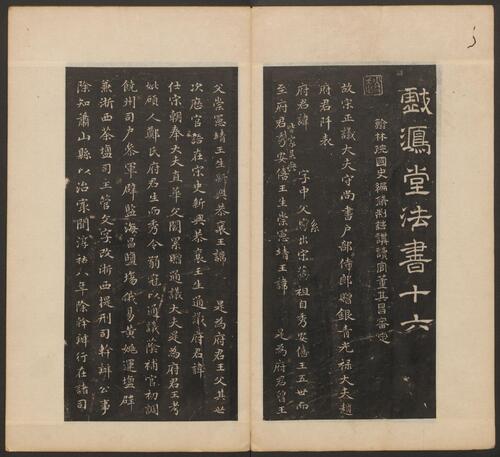 戲鴻堂法書十六
翰林院國史編修制誥講讀官董其昌審定
故宋正議大夫守尚書戶部侍郎贈銀青光祿大夫趙
府君阡表
府君諱 字中父 系出宋藝祖自秀安僖王五世而
至府君秀安僖王生崇憲靖王諱 是為府君曾王
父崇憲靖王生新興恭襄王諱 是為府君王父其世
次歷官語在宋史新興恭襄王生通議府君諱
仕宋朝奉大夫直華文閣累贈通議大夫是為府君王考
妣碩人鄭氏府君生而秀令弱冠以通議蔭補官初調
饒州司戶參軍辟監海昌鹽場俄易黃姚運鹽辟
兼浙西茶鹽司主管文字改浙西提刑司幹辦公事
除知蕭山縣以治最聞浮祜八年除幹辦行在諸司